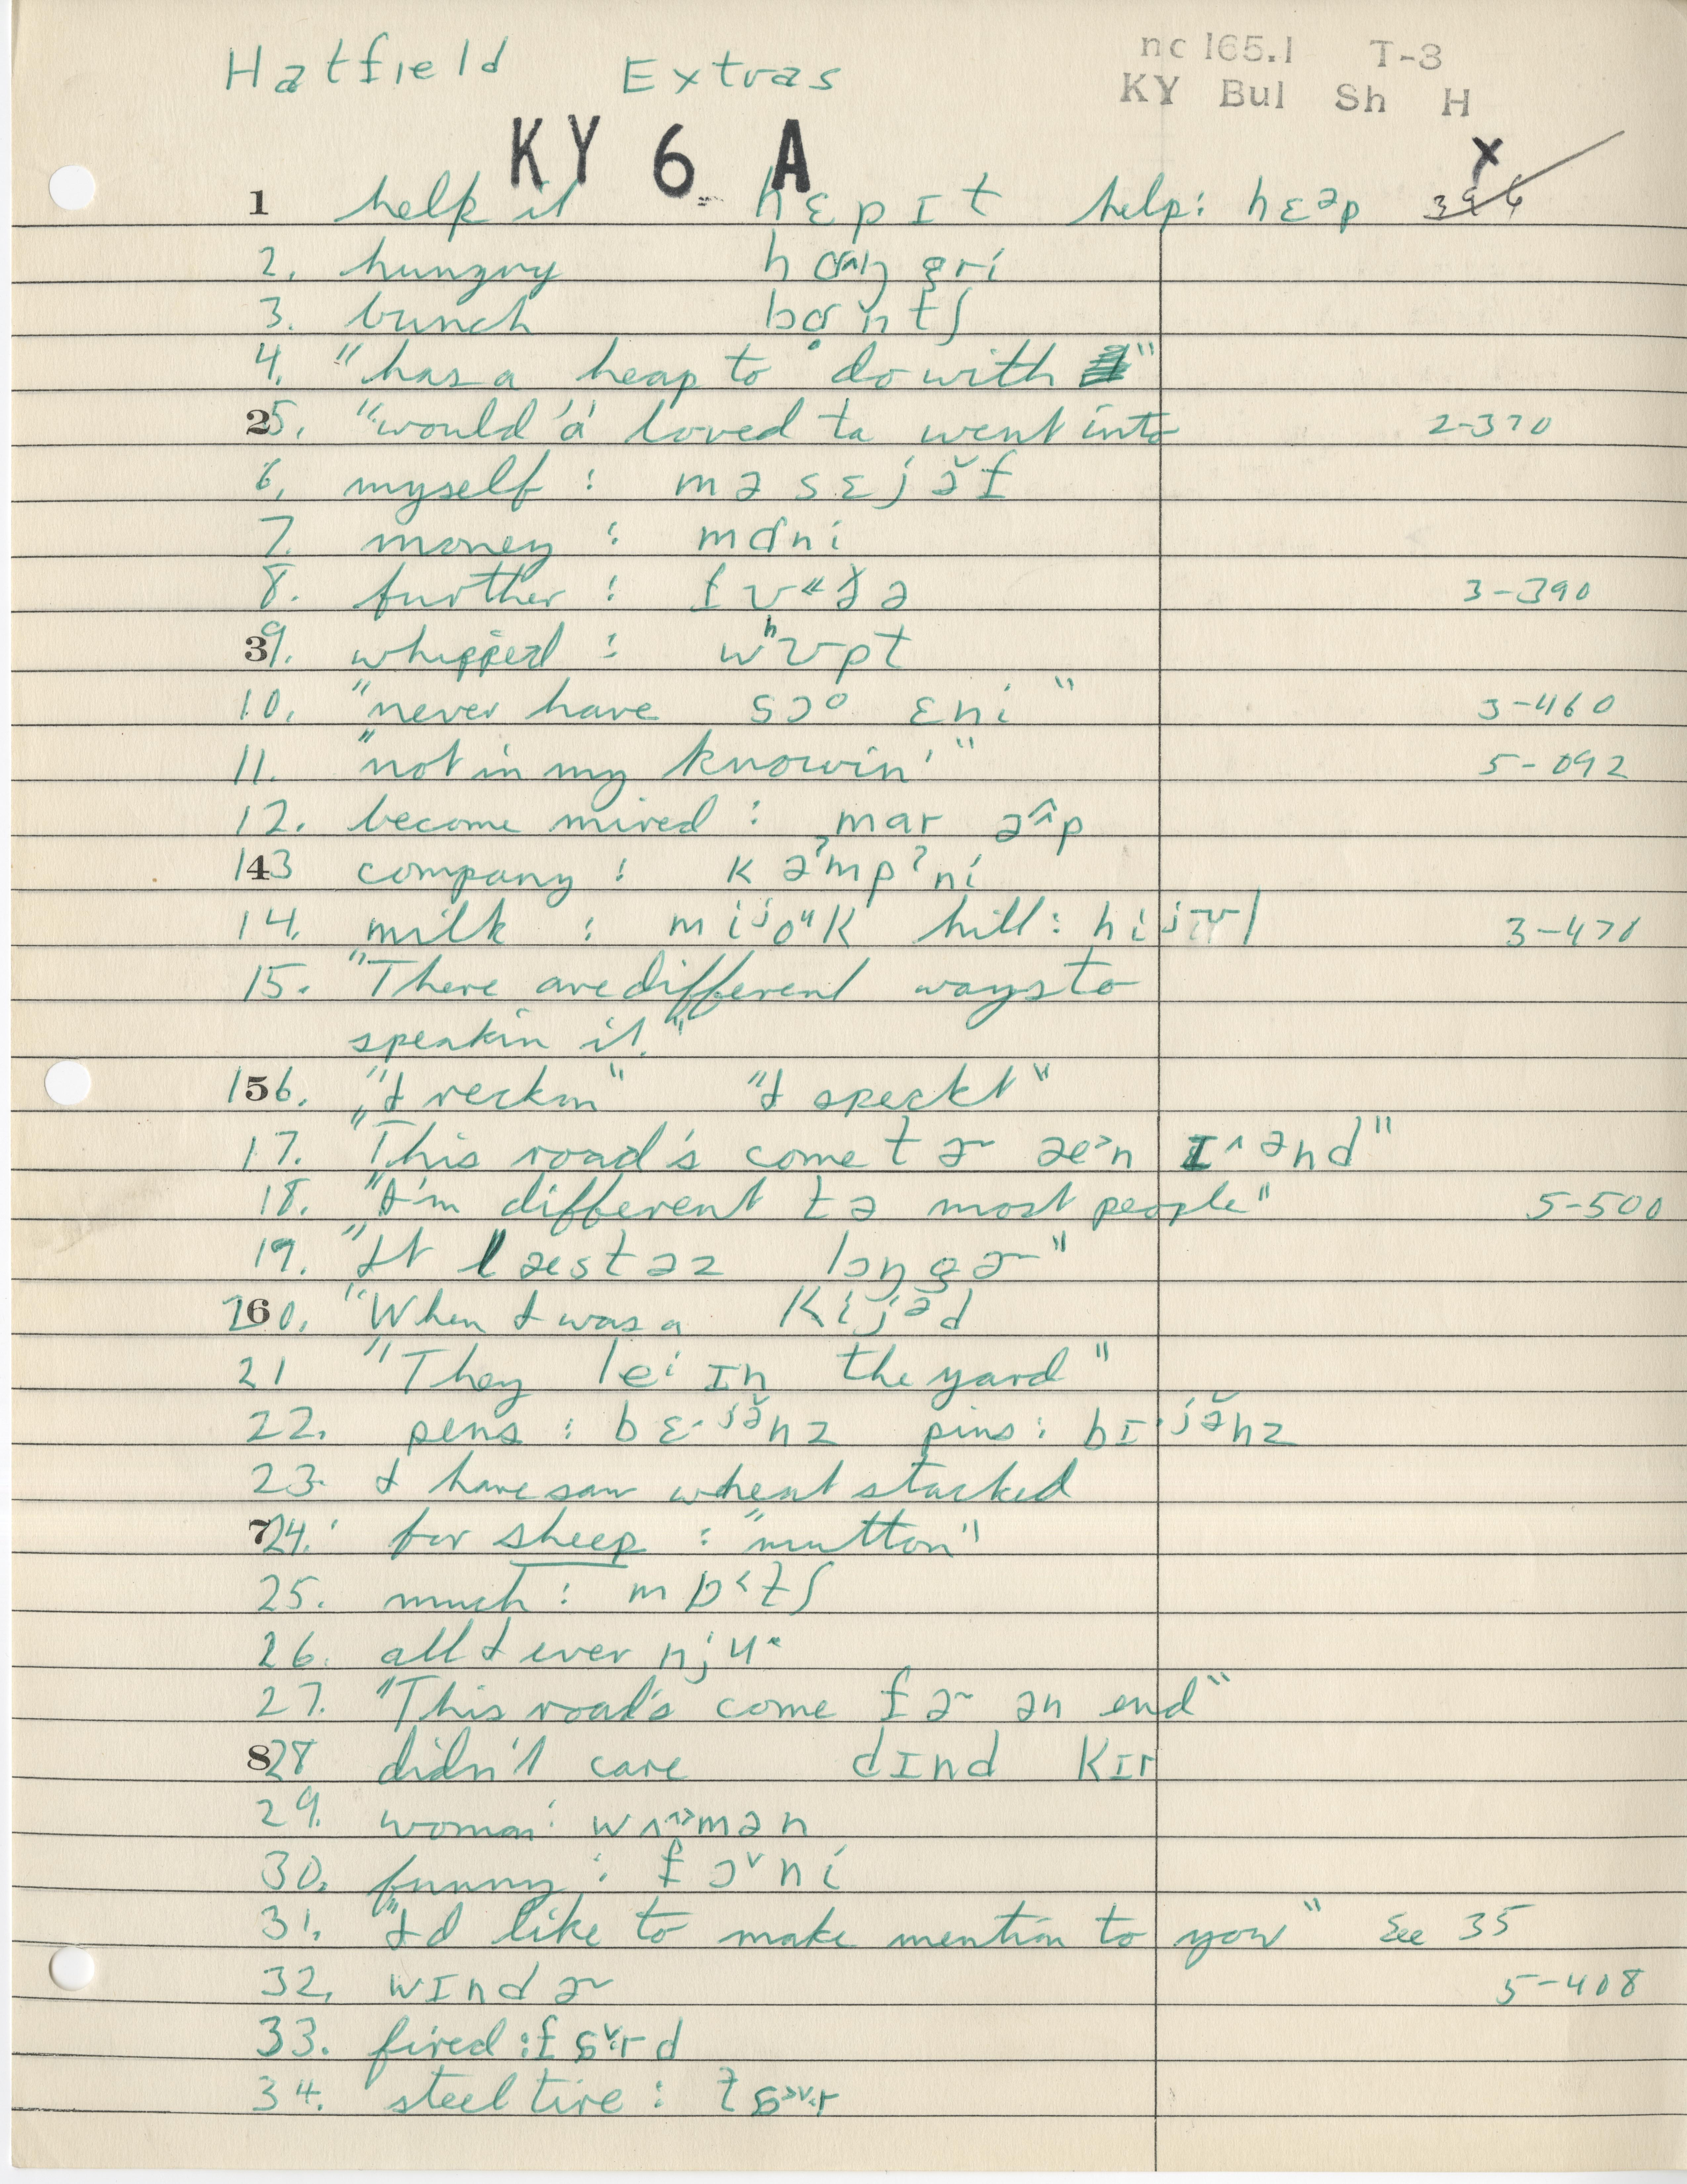 Hatfield Extras
nc 165.1 T-3
KY Bul Sh H
KY 6 A
X
1 help it hɛpɪt help: hɛᵊp 396
2. hungry
3. bunch
4. "has a heap to do with"
5. "would 'a' loved ta went into 2-370
6. myself : məsɛjə̆f
7. money : mɑni
8. further : 3-390
9. whipped : wʰʊpt
10. "never have sɔᵒ ɛni" 3-460
11. "not in my knowin'" 5-092
12. become mired : mar ə^p
13 company : kəˀmpˀni
14. milk : miʲoᵘk hill: 3-470
15. "There are different ways to
speakin it."
16. "I reckon" "I speckt"
17. "This road's come tɚ æ˃n ɪ^ənd"
18. "I'm different tə most people" 5-500
19. "It læstəz lɔŋgɚ"
20. "When I was a kijᵊd
21 "They leⁱ ɪn the yard"
22. pens : bɛ·ʲə̆nz pins : bɪ·ʲə̆nz
23. I have saw wheat stacked
24. for sheep : "mutton"
25. much : mɒ˂tʃ
26. all I ever njuˑ
27. "This road's come fɚ ən end"
28 didn't care dɪnd kɪr
29. woman: wʌ^˃mən
30. funny : fɔ˅ni
31. "I'd like to make mention to you" See 35
32. wɪndɚ 5-408
33. fired :
34. steel tire :
2
3
4
5
6
7
8